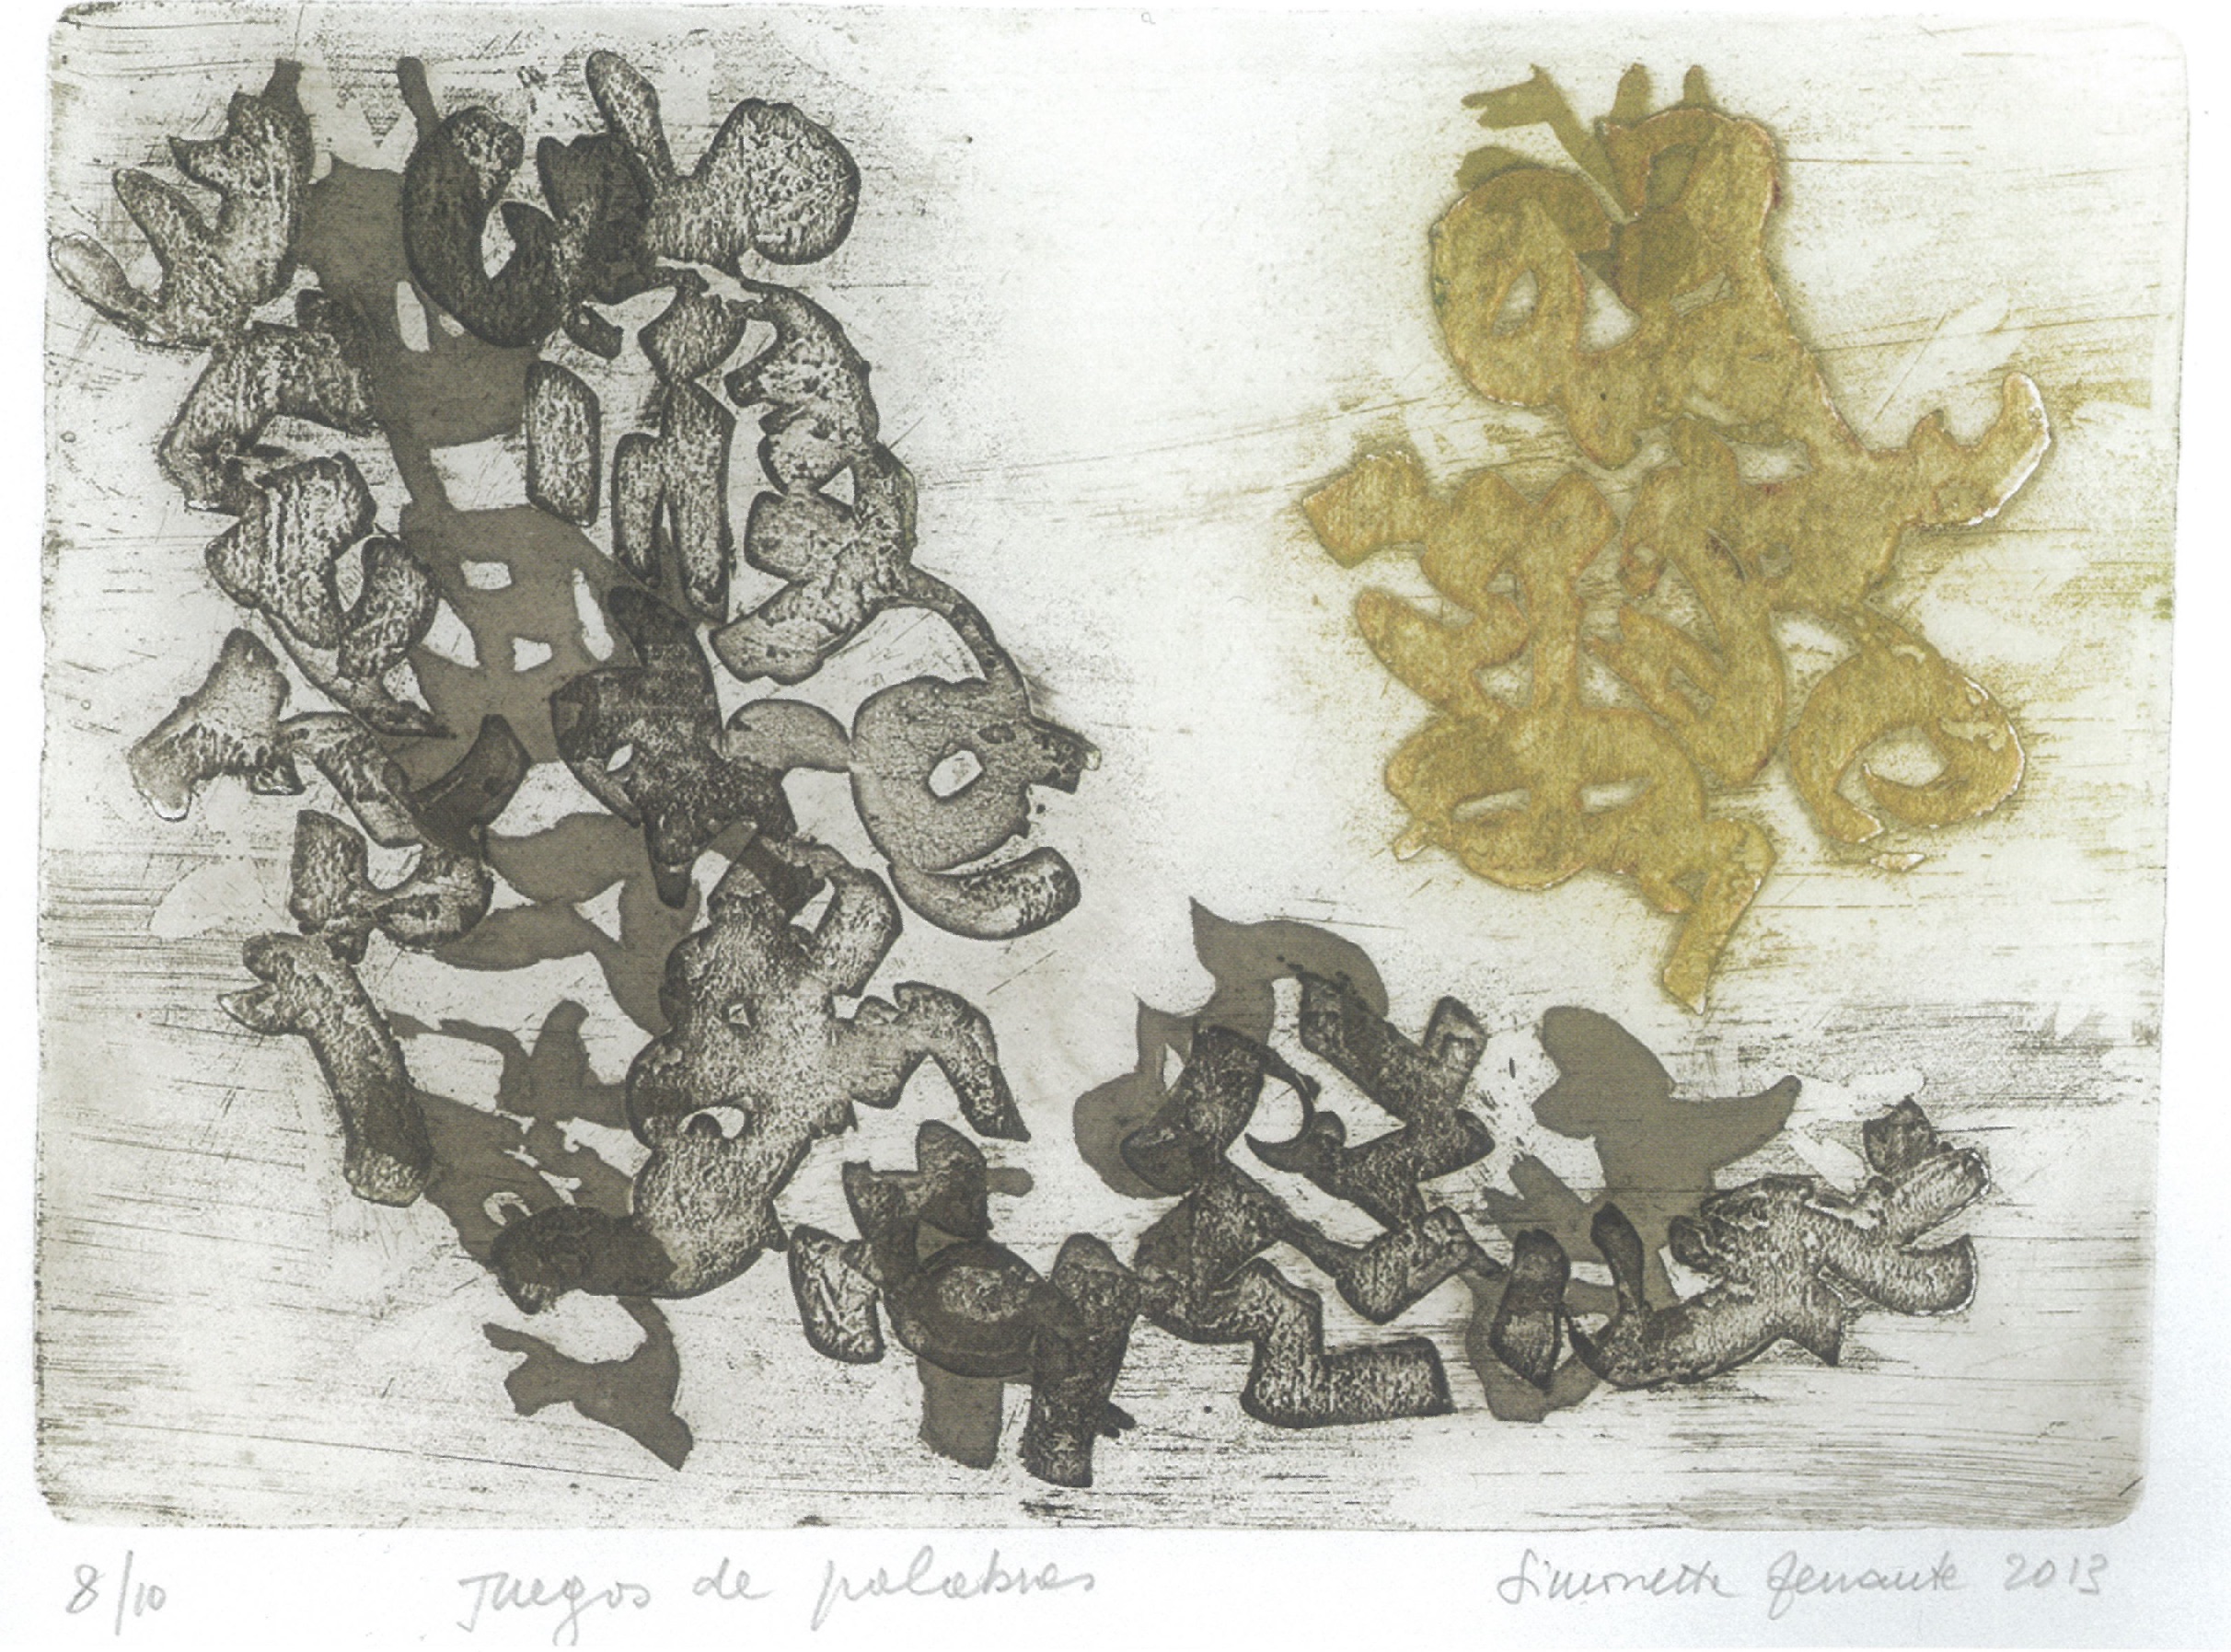 8/10 Juegos de palabras Simonetta Ferrante 2013